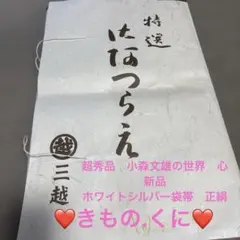 特選
はなつらえ
越 三越
超秀品　小森文雄の世界　心
新品
ホワイトシルバー袋帯　正絹
❤️きもの くに❤️